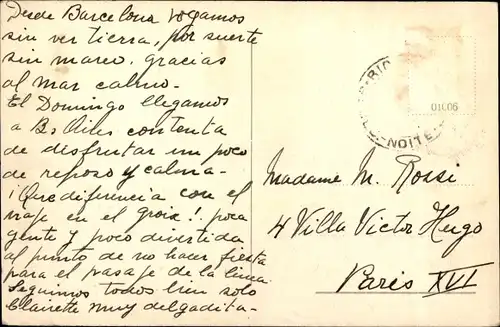 Desde Barcelona vogamos
sin ver tierra, por suerte
sin mareo. gracias
al mar calmo-
El Domingo llegamos
a Bs Aires contenta
de desfrutar un poco
de reposo y calma-
¡Que diferencia con el
viaje en el groix! poca
gente y poco divertida
al punto de no hacer fiesta
para el pasaje de la linea
Seguimos todos bien solo
Clairette muy delgadita-
RIO
NOITE
01006
Madame M. Rossi
4 Villa Victor Hugo
Paris XVI